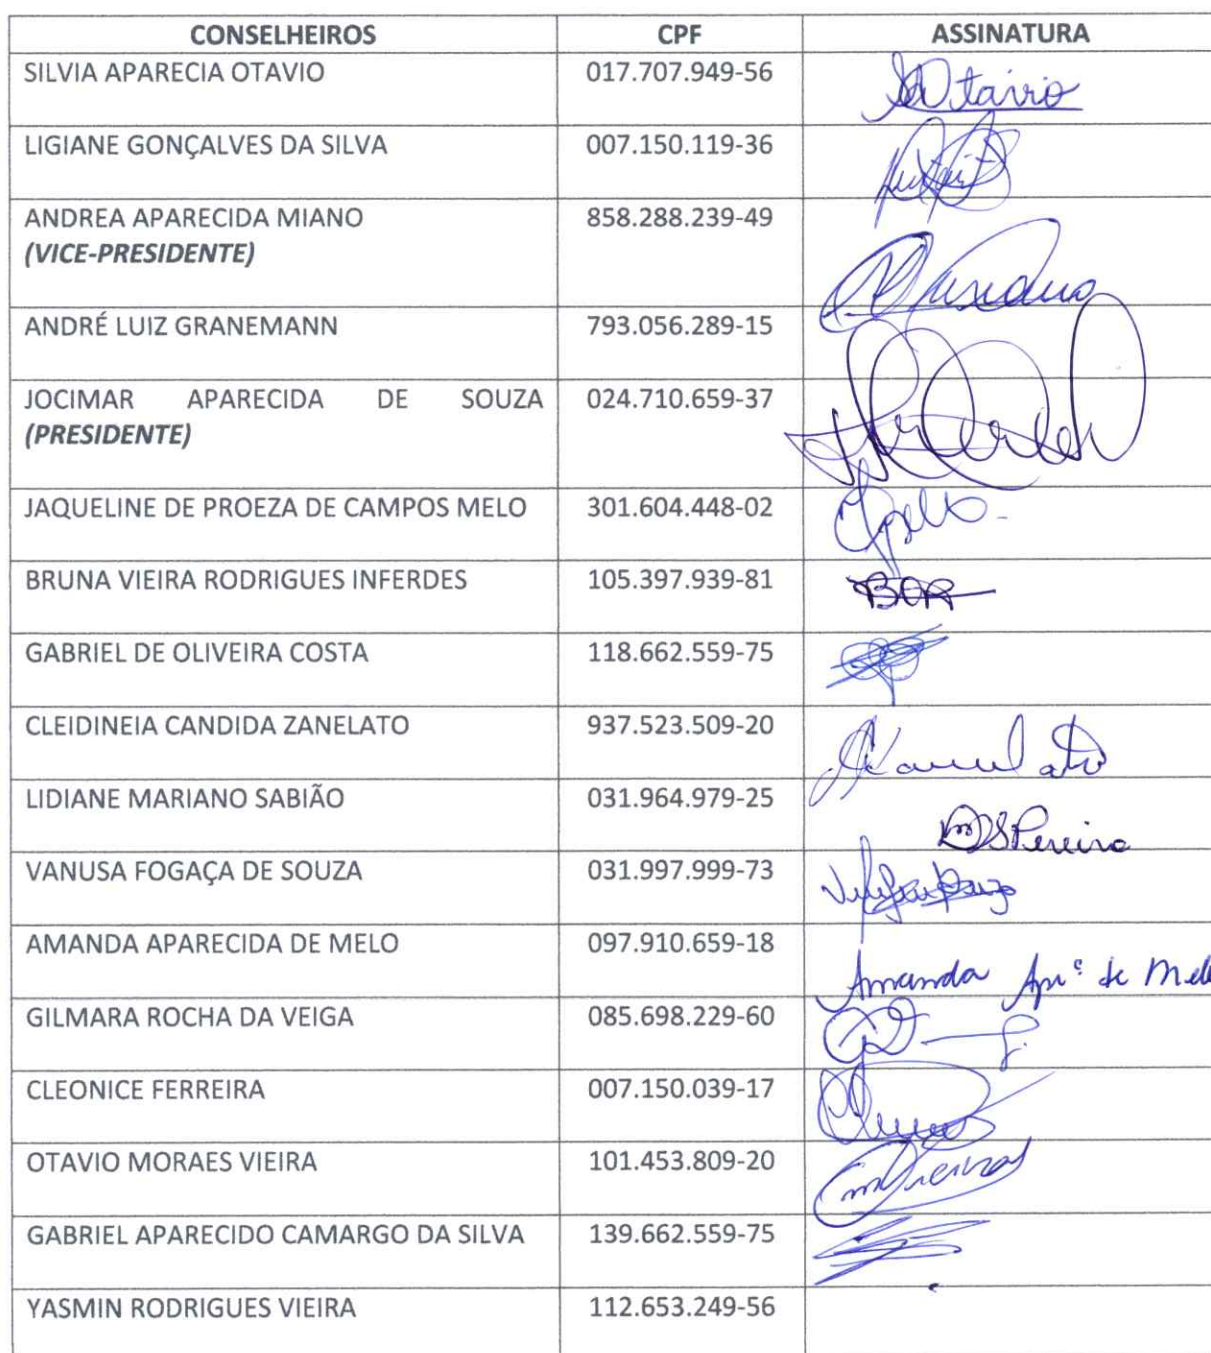 CONSELHEIROS CPF ASSINATURA
SILVIA APARECIA OTAVIO 017.707.949-56 Otavio
LIGIANE GONÇALVES DA SILVA 007.150.119-36
ANDREA APARECIDA MIANO 858.288.239-49
(VICE-PRESIDENTE)
ANDRÉ LUIZ GRANEMANN 793.056.289-15
JOCIMAR APARECIDA DE SOUZA 024.710.659-37
(PRESIDENTE)
JAQUELINE DE PROEZA DE CAMPOS MELO 301.604.448-02
BRUNA VIEIRA RODRIGUES INFERDES 105.397.939-81
GABRIEL DE OLIVEIRA COSTA 118.662.559-75
CLEIDINEIA CANDIDA ZANELATO 937.523.509-20
LIDIANE MARIANO SABIÃO 031.964.979-25 Pereira
VANUSA FOGAÇA DE SOUZA 031.997.999-73
AMANDA APARECIDA DE MELO 097.910.659-18 Amanda Apª de Melo
GILMARA ROCHA DA VEIGA 085.698.229-60
CLEONICE FERREIRA 007.150.039-17
OTAVIO MORAES VIEIRA 101.453.809-20
GABRIEL APARECIDO CAMARGO DA SILVA 139.662.559-75
YASMIN RODRIGUES VIEIRA 112.653.249-56